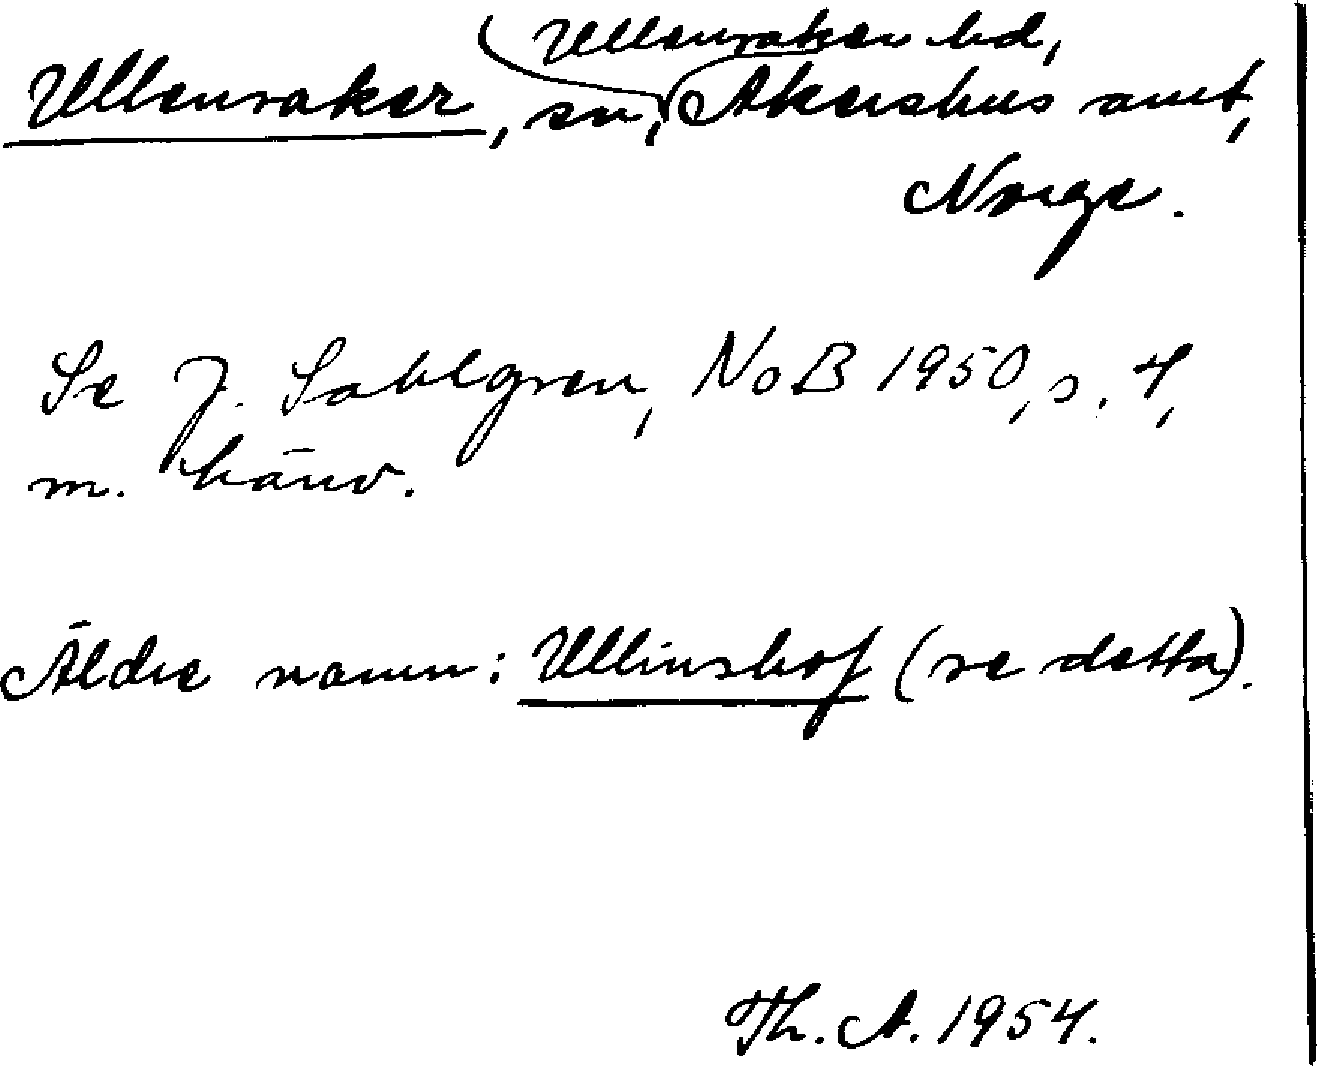 Ullensaker hd,
Ullensaker, sn, Akershus amt,
Norge.
Se J. Sahlgren, NoB 1950, s. 4,
m. hänv.
Äldre namn: Ullinshof (se detta).
Th. A. 1954.